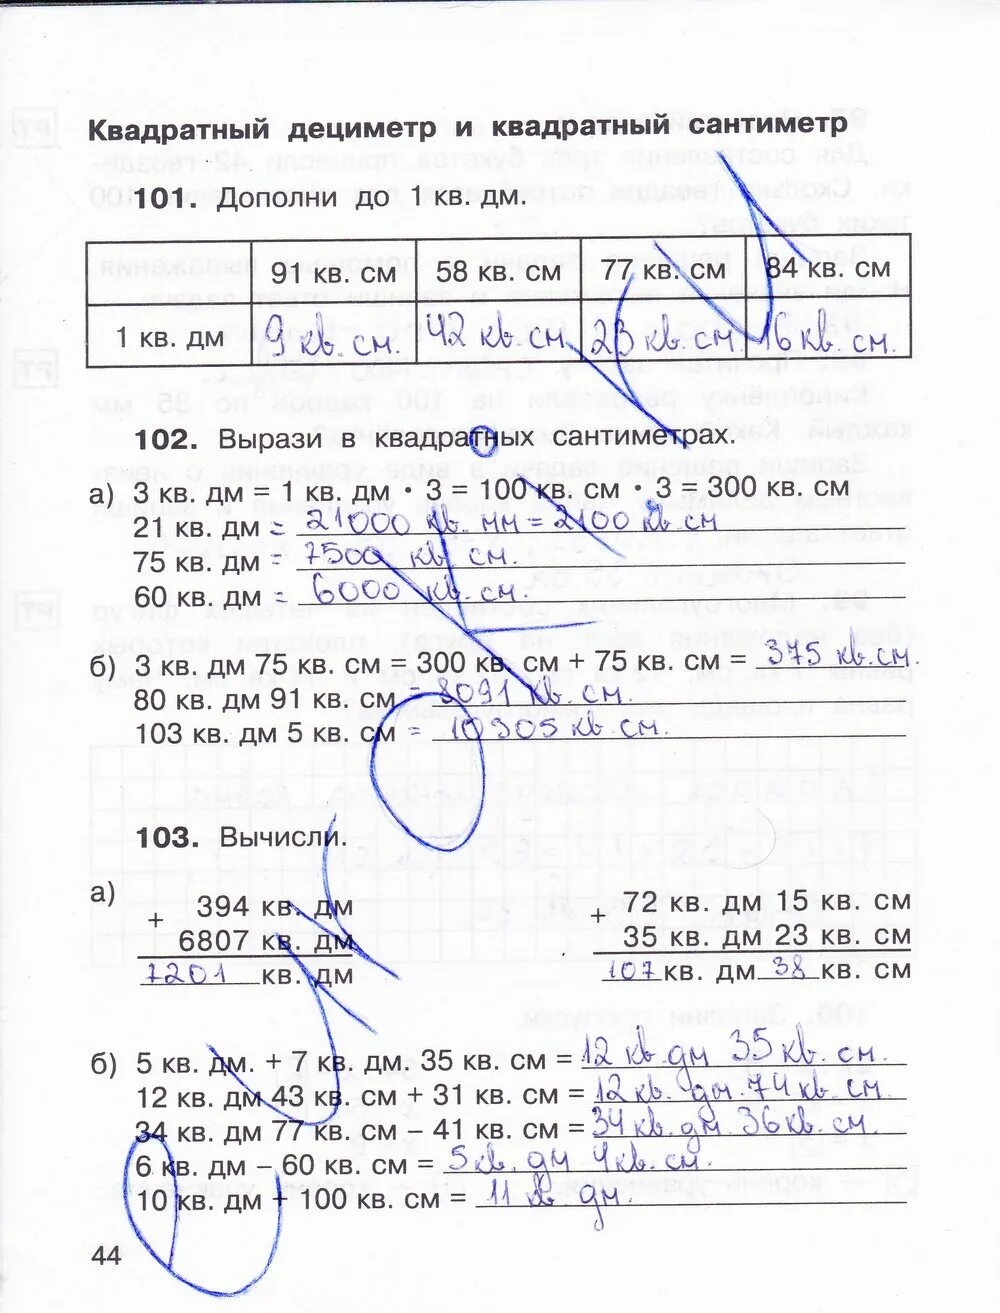 Квадратный дециметр и квадратный сантиметр
101. Дополни до 1 кв. дм.
91 кв. см 58 кв. см 77 кв. см 84 кв. см
1 кв. дм 9 кв. см. 42 кв. см 23 кв. см. 16 кв. см.
102. Вырази в квадратных сантиметрах.
а) 3 кв. дм = 1 кв. дм · 3 = 100 кв. см · 3 = 300 кв. см
21 кв. дм = 21000 кв. мм = 2100 кв. см
75 кв. дм = 7500 кв. см.
60 кв. дм = 6000 кв. см.
б) 3 кв. дм 75 кв. см = 300 кв. см + 75 кв. см = 375 кв. см.
80 кв. дм 91 кв. см = 8091 кв. см.
103 кв. дм 5 кв. см = 10305 кв. см.
103. Вычисли.
а) + 394 кв. дм
6807 кв. дм
7201 кв. дм
+ 72 кв. дм 15 кв. см
35 кв. дм 23 кв. см
107 кв. дм 38 кв. см
б) 5 кв. дм. + 7 кв. дм. 35 кв. см = 12 кв. дм 35 кв. см.
12 кв. дм 43 кв. см + 31 кв. см = 12 кв. дм. 74 кв. см.
34 кв. дм 77 кв. см – 41 кв. см = 34 кв. дм. 36 кв. см.
6 кв. дм – 60 кв. см = 5 кв. дм 4 кв. см.
10 кв. дм + 100 кв. см = 11 кв. дм.
44